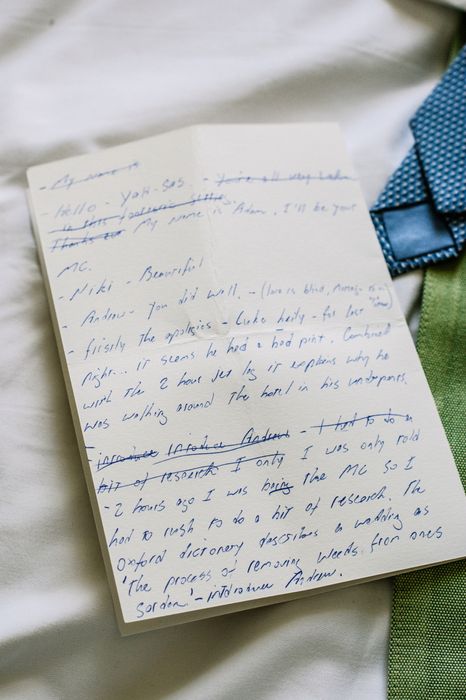 - My name is
- Hello - YAH-SAS - You're all very
to this
Thanks for My name is Adam, I'll be your
MC.
- Niki - Beautiful
- Andrew - You did well. - (love is blind,
- firstly the apologies - Luke - for last
night... it seems he had a bad pint. Combined
with the 2 hour jet lag it explains why he
was walking around the hotel in his underpants.
-
introduce Introduce Andrew - I had to do a
bit of research I only I was only told
- 2 hours ago I was being the MC so I
had to rush to do a bit of research. The
Oxford dictionary describes a wedding as
'The process of removing weeds from ones
garden' - introduce Andrew.